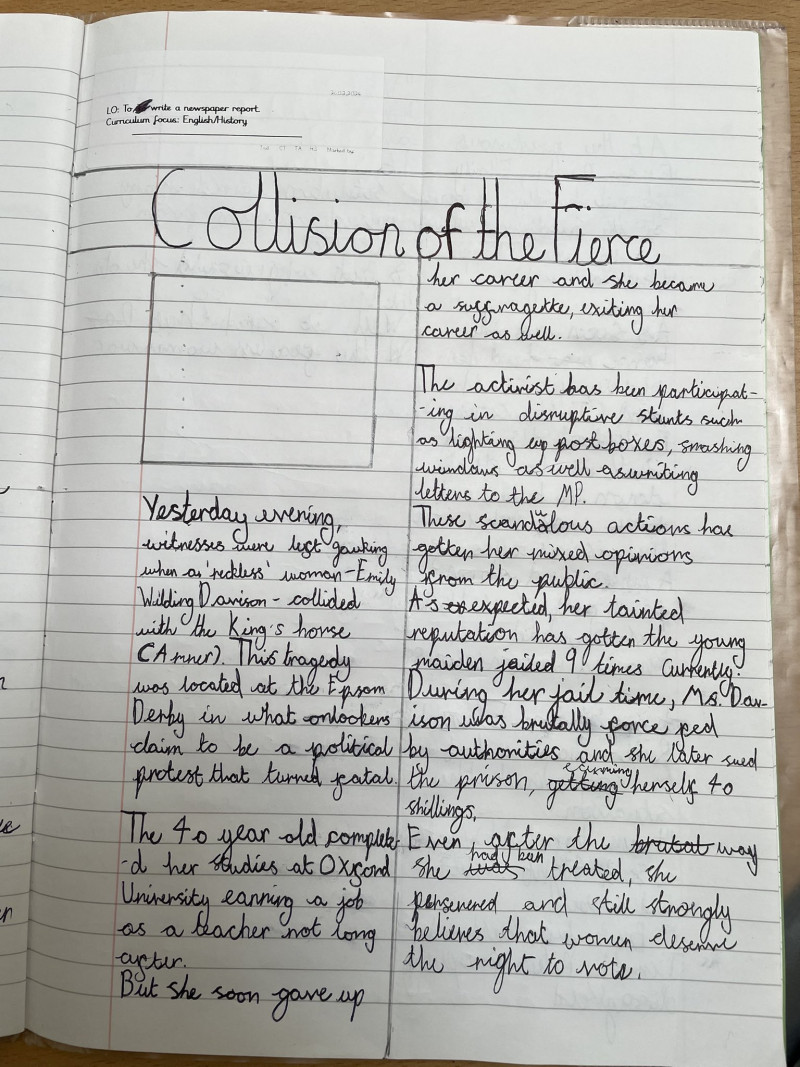 LO: To write a newspaper report.
Curriculum focus: English/History
Collision of the Fierce
Yesterday evening,
witnesses were left gawking
when a 'reckless' woman - Emily
Wilding Davison - collided
with the King's horse
(Amner). This tragedy
was located at the Epsom
Derby in what onlookers
claim to be a political
protest that turned fatal.
The 40 year old complete-
-d her studies at Oxford
University earning a job
as a teacher not long
after.
But she soon gave up
her career and she became
a suffragette, exiting her
career as well.
The activist has been participat-
-ing in disruptive stunts such
as lighting up post boxes, smashing
windows as well as writing
letters to the MP.
These scandalous actions has
gotten her mixed opinions
from the public.
As expected, her tainted
reputation has gotten the young
maiden jailed 9 times currently.
During her jail time, Ms. Dav-
ison was brutally force fed
by authorities and she later sued
the prison, earning herself 40
shillings.
Even, after the way
she had been treated, she
persevered and still strongly
believes that women deserve
the right to vote.